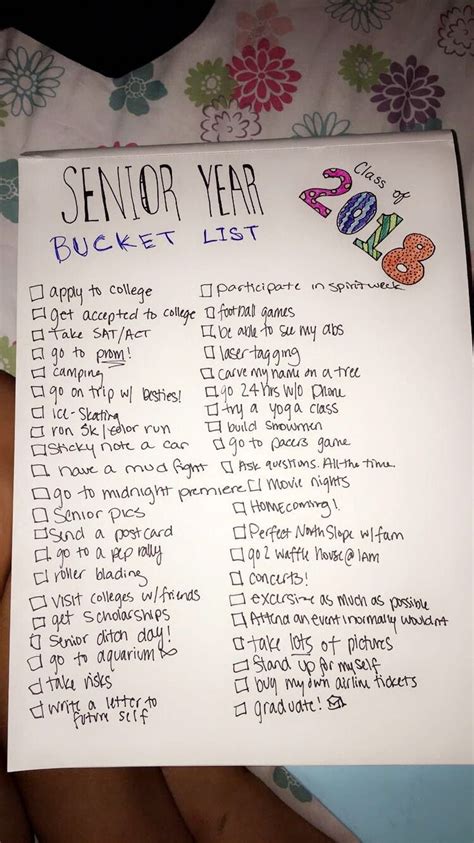 SENIOR YEAR
BUCKET LIST
Class of
2018
apply to college
get accepted to college
Take SAT/ACT
go to prom!
camping
go on trip w/ besties!
ice-skating
run 5k/color run
Sticky note a car
have a mud fight
go to midnight premiere
Senior pics
Send a postcard
go to a pep rally
roller blading
VISIT colleges w/friends
get scholarships
Senior ditch day!
go to aquarium
take risks
write a letter to
future self
participate in spiritweek
football games
be able to see my abs
laser tagging
carve my name on a tree
go 24 hrs w/o Phone
try a yoga class
build snowmen
go to pacers game
Ask questions. All the time.
movie nights
HOMEcoming!
Perfect North Slope w/ fam
go 2 waffle house @ 1AM
concerts!
excersise as much as possible
Attend an event I normally wouldnt
take lots of pictures
Stand up for myself
buy my own airline tickets
graduate!